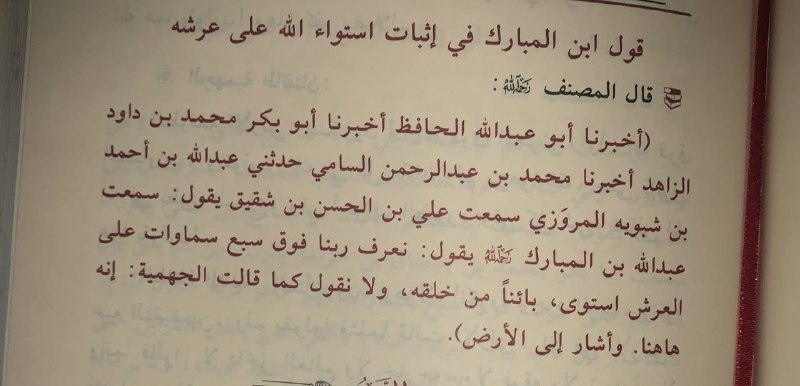 قول ابن المبارك في إثبات استواء الله على عرشه
قال المصنف رَحِمَهُ اللَّهُ :
(أخبرنا أبو عبدالله الحافظ أخبرنا أبو بكر محمد بن داود
الزاهد أخبرنا محمد بن عبدالرحمن السامي حدثني عبدالله بن أحمد
بن شبويه المروَزي سمعت علي بن الحسن بن شقيق يقول: سمعت
عبدالله بن المبارك رَحِمَهُ اللَّهُ يقول: نعرف ربنا فوق سبع سماوات على
العرش استوى، بائناً من خلقه، ولا نقول كما قالت الجهمية: إنه
هاهنا. وأشار إلى الأرض).